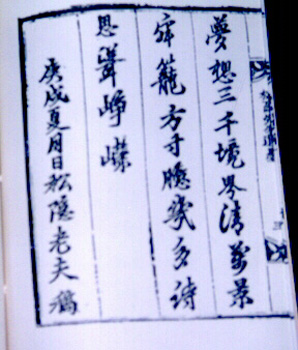 夢想三千境岑清萬景
牢籠方寸臆幾多詩
思聳崢嶸
庚戌夏月日松隱老夫稿